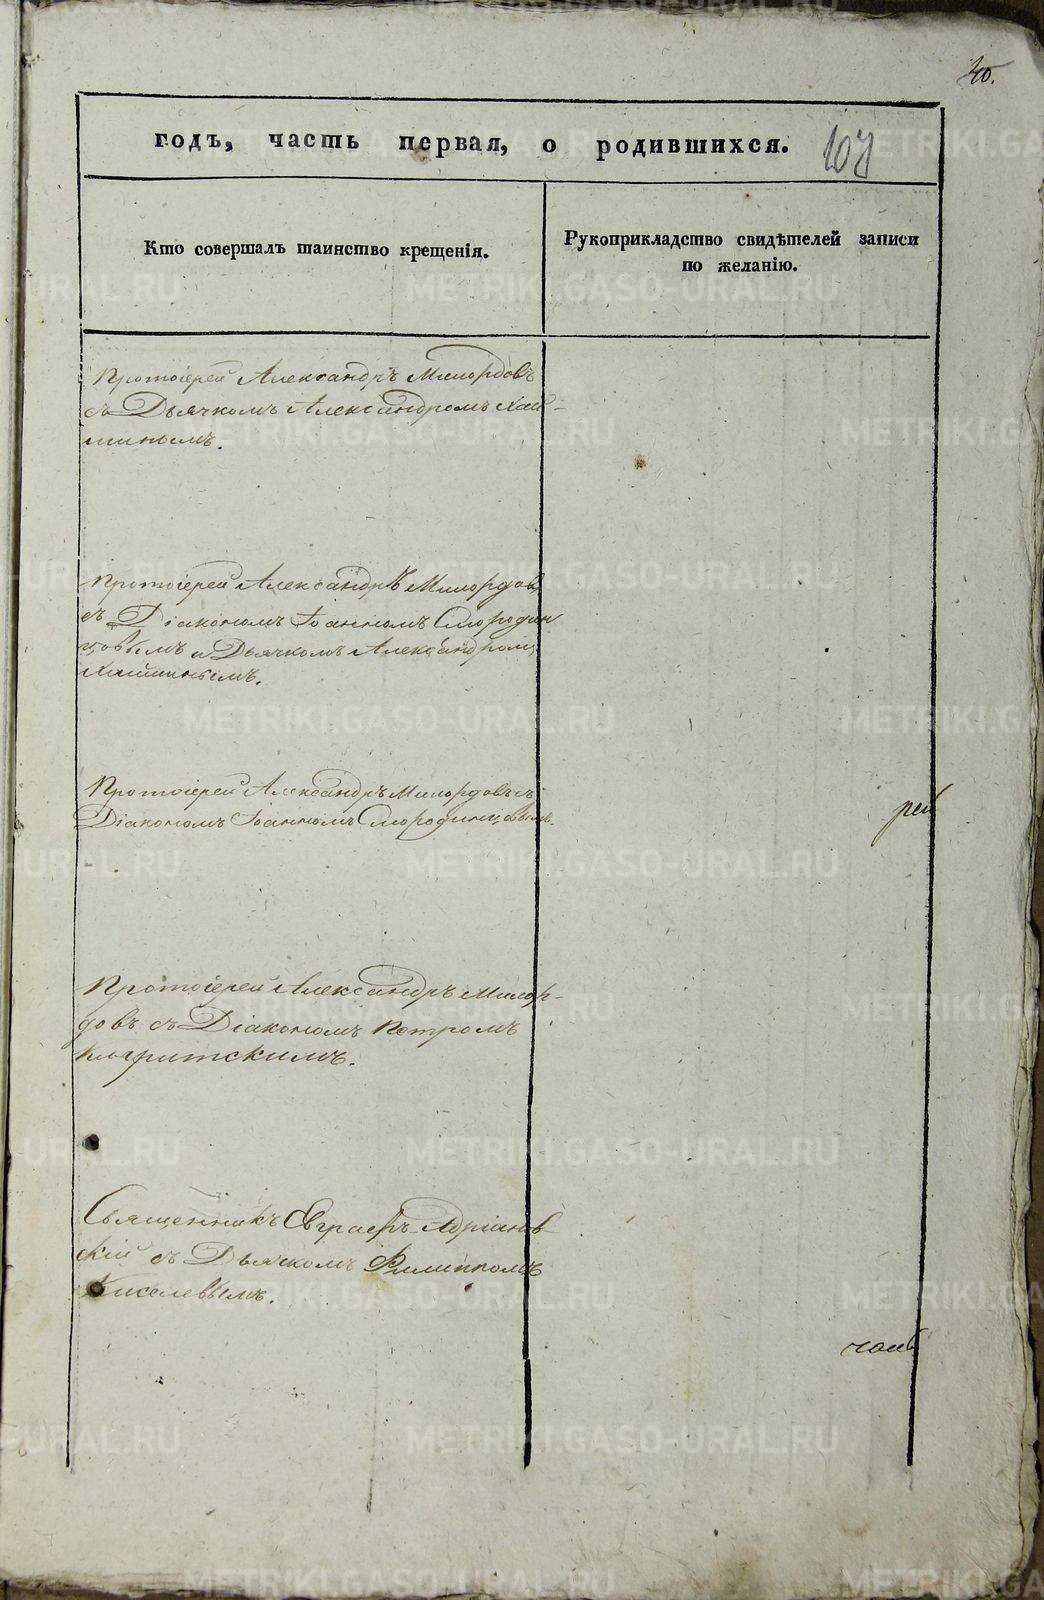 40.
годъ, часть первая, о родившихся. 107
Кто совершалъ таинство крещенія.
Рукоприкладство свидѣтелей записи
по желанію.
Протоіерей Александръ Милордовъ
съ Дьячкомъ Александромъ Хай-
минымъ.
Протоіерей Александръ Милордовъ
съ Діакономъ Іоанномъ Смородин
цовымъ и Дьячкомъ Александромъ
Хайминымъ.
Протоіерей Александръ Милордовъ съ
Діакономъ Іоанномъ Смородинцовымъ.
Протоіерей Александръ Милор-
довъ съ Діакономъ Петромъ
Священникъ Евграфъ Адріанов-
скій съ Дьячкомъ Филиппомъ
Киселевымъ.
METRIKI.GASO-URAL.RU